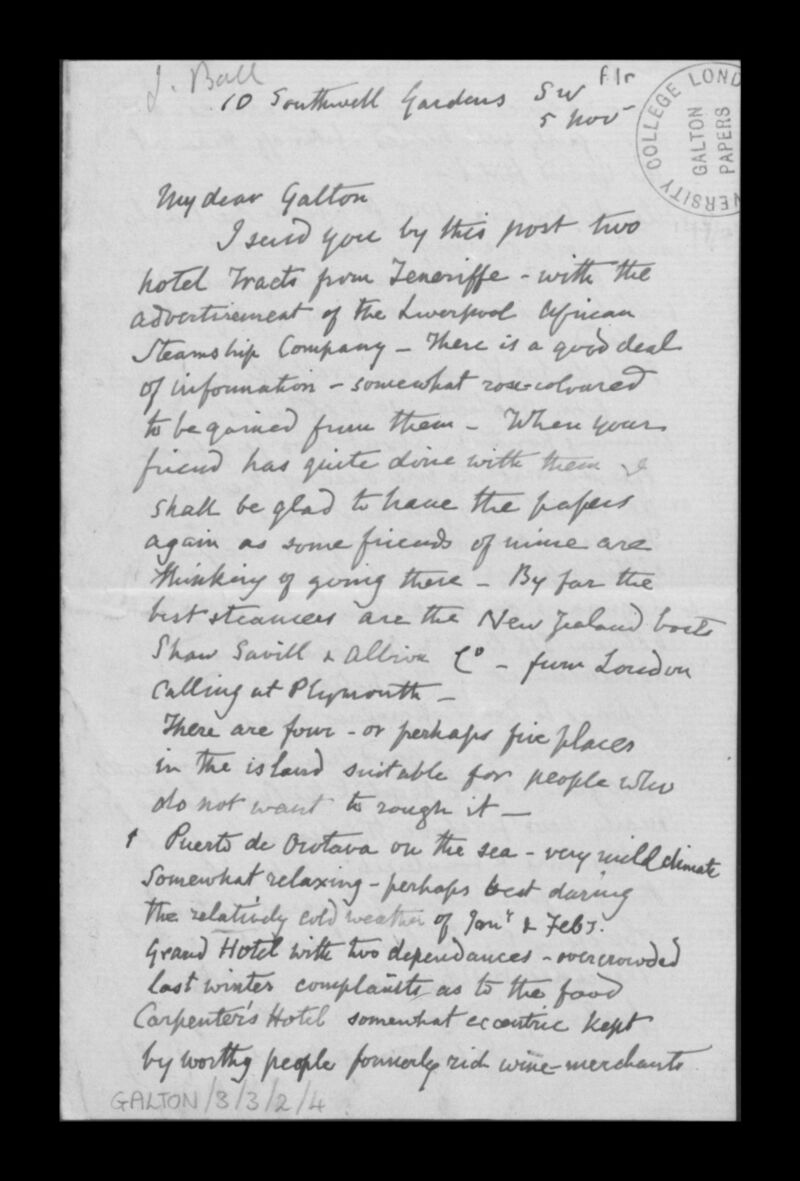 J. Ball
f1r
10 Southwell Gardens SW
5 Nov
UNIVERSITY COLLEGE LOND
GALTON
PAPERS
My dear Galton
I send you by this post two
hotel Tracts from Teneriffe - with the
advertisement of the Liverpool African
Steamship Company - There is a good deal
of information - somewhat rose-coloured
to be gained from them - When your
friend has quite done with them I
shall be glad to have the papers
again as some friends of mine are
thinking of going there - By far the
best steamers are the New Zealand boats
Shaw Savill & Albion Co - from London
calling at Plymouth -
There are four - or perhaps five places
in the island suitable for people who
do not want to rough it -
1 Puerto de Orotava on the sea - very mild climate
Somewhat relaxing - perhaps best during
the relatively cold weather of Jany & Feby.
Grand Hotel with two dependances - overcrowded
last winter complaints as to the food
Carpenter's Hotel somewhat eccentric kept
by worthy people formerly rich wine-merchants
GALTON/3/3/2/4